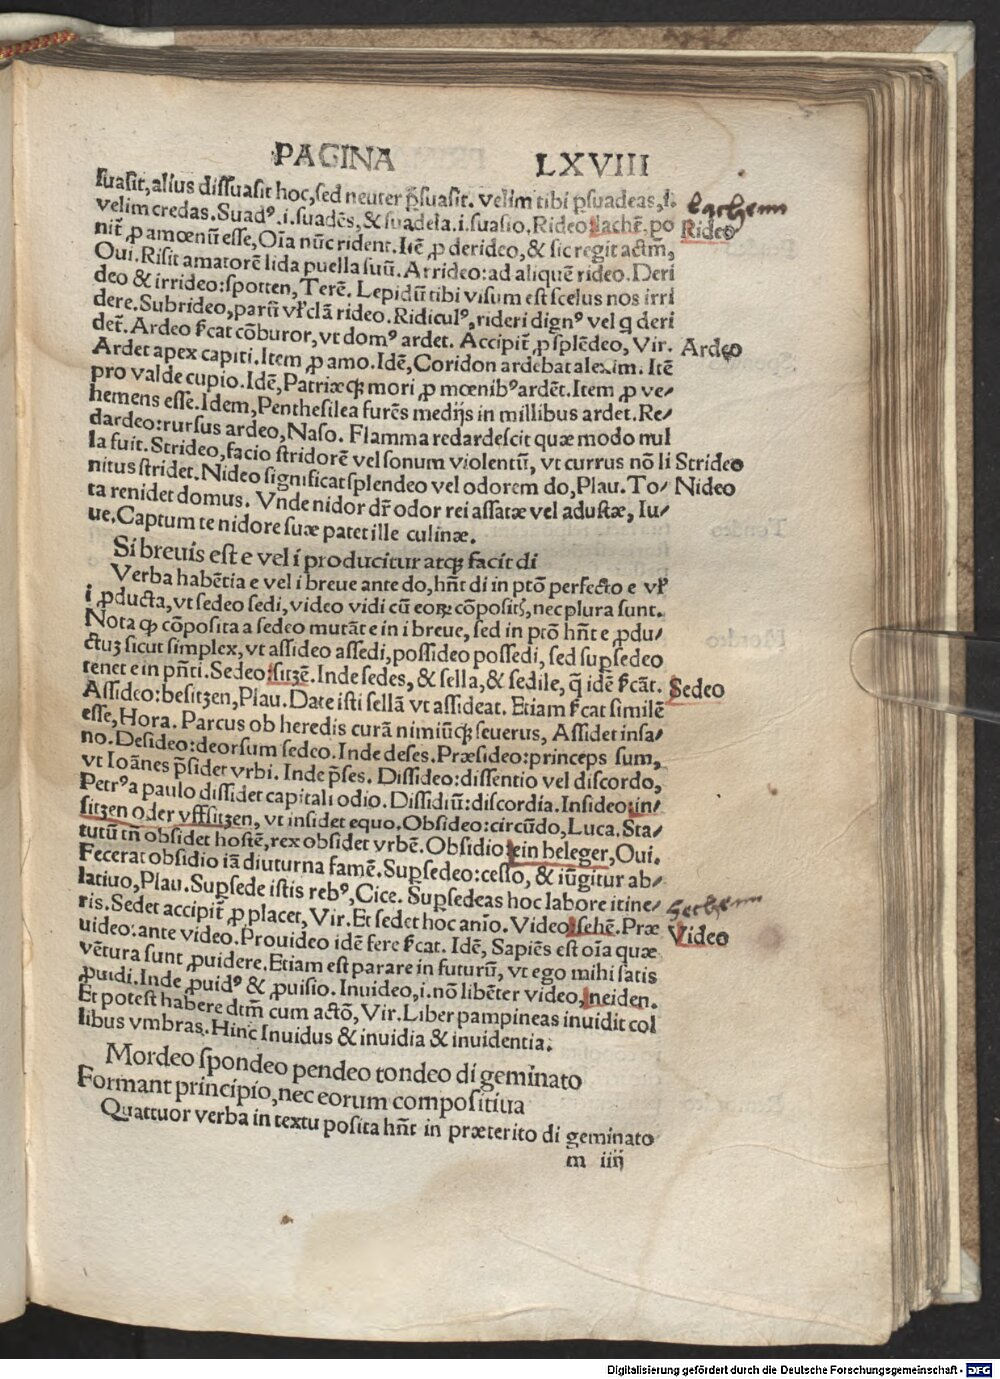 PAGINA LXVIII
suasit, alius dissuasit hoc, sed neuter p̄suasit. velim tibi psuadeas, i. lachenn
velim credas. Suadꝰ .i. suadēs, & suadela .i. suasio. Rideo: lachē. po Rideo
nit̄ ꝓ amœnū esse, Oīa nūc rident. Itē ꝓ derideo, & sic regit actm̄,
Oui. Risit amatorē lida puella suū. Arrideo: ad aliquē rideo. Deri
deo & irrideo: spotten, Terē. Lepidū tibi visum est scelus nos irri
dere. Subrideo, parū vl̄ clā rideo. Ridiculꝰ, rideri dignꝰ vel q deri
det̄. Ardeo ſcat cōburor, vt domꝰ ardet. Accipit̄ ꝓ splēdeo, Vir. Ardeo
Ardet apex capiti. Item ꝓ amo. Idē, Coridon ardebat alexim. Itē
pro valde cupio. Idē, Patriæqꝫ mori ꝓ mœnibꝰ ardēt. Item ꝓ ve⸗
hemens esse. Idem, Penthesilea furēs medijs in millibus ardet. Re⸗
dardeo: rursus ardeo, Naso. Flamma redardescit quæ modo nul
la fuit. Strideo, facio stridorē vel sonum violentū, vt currus nō li Strideo
nitus stridet. Nideo significat splendeo vel odorem do, Plau. To⸗ Nideo
ta renidet domus. Vnde nidor dr̄ odor rei assatæ vel adustæ, Iu⸗
ue. Captum te nidore suæ patet ille culinæ.
Si breuis est e vel i producitur atqꝫ facit di
Verba habētia e vel i breue ante do, hn̄t di in ptō perfecto e vl̄
i ꝓducta, vt sedeo sedi, video vidi cū eoꝝ cōpositꝭ, nec plura sunt.
Nota ꝙ cōposita a sedeo mutāt e in i breue, sed in ptō hn̄t e ꝓdu⸗
ctuꝫ sicut simplex, vt assideo assedi, possideo possedi, sed supsedeo
tenet e in pn̄ti. Sedeo: sitzē. Inde sedes, & sella, & sedile, q̄ idē ſcāt. Sedeo
Assideo: besitzen, Plau. Date isti sellā vt assideat. Etiam ſcat similē
esse, Hora. Parcus ob heredis curā nimiūqꝫ seuerus, Assidet insa⸗
no. Desideo: deorsum sedeo. Inde deses. Præsideo: princeps sum,
vt Ioānes p̄sidet vrbi. Inde p̄ses. Dissideo: dissentio vel discordo,
Petrꝰ a paulo dissidet capitali odio. Dissidiū: discordia. Insideo: in⸗
sitzen oder vffsitzen, vt insidet equo. Obsideo: circūdo, Luca. Sta⸗
tutū tn̄ obsidet hostē, rex obsidet vrbē. Obsidio: ein beleger, Oui.
Fecerat obsidio iā diuturna famē. Supsedeo: cesso, & iūgitur ab⸗
latiuo, Plau. Supsede istis rebꝰ, Cice. Supsedeas hoc labore itine⸗
ris. Sedet accipit̄ ꝓ placet, Vir. Et sedet hoc anīo. Video: sehē. Præ Video
uideo: ante video. Prouideo idē fere ſcat. Idē, Sapiēs est oīa quæ
vētura sunt ꝓuidere. Etiam est parare in futurū, vt ego mihi satis
ꝓuidi. Inde ꝓuidꝰ & ꝓuisio. Inuideo, .i. nō libēter video, neiden.
Et potest habere dtm̄ cum actō, Vir. Liber pampineas inuidit col
libus vmbras. Hinc Inuidus & inuidia & inuidentia.
Mordeo spondeo pendeo tondeo di geminato
Formant principio, nec eorum compositiua
Quattuor verba in textu posita hn̄t in præterito di geminato
m iiij
Digitalisierung gefördert durch die Deutsche Forschungsgemeinschaft - DFG